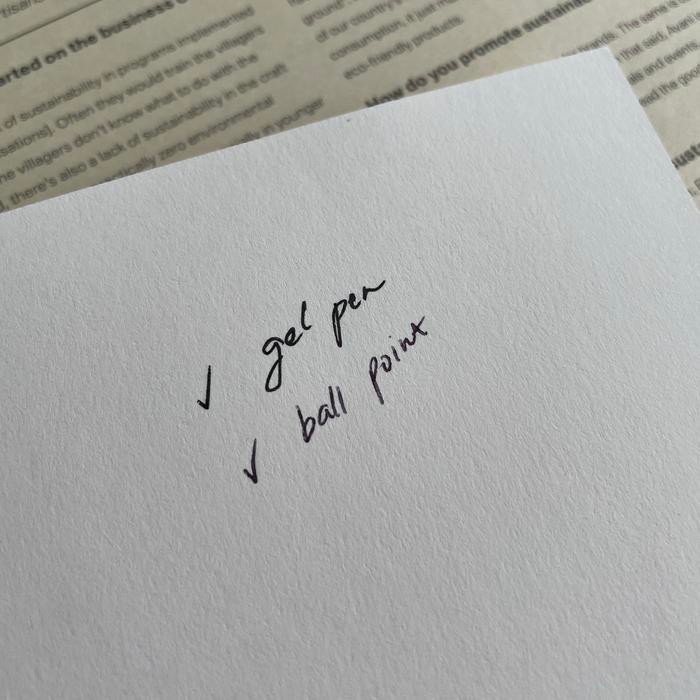 arted on the business
of sustainability in programs implemented
sations]. Often they would train the villagers
he villagers don't know what to do with the
there's also a lack of sustainability in the craft
zero environmental
in younger
ground
of our country's
consumption, it just
eco-friendly products.
How do you promote sustaina
The same is
that said,
and even
the goo
✓ gel pen
✓ ball point